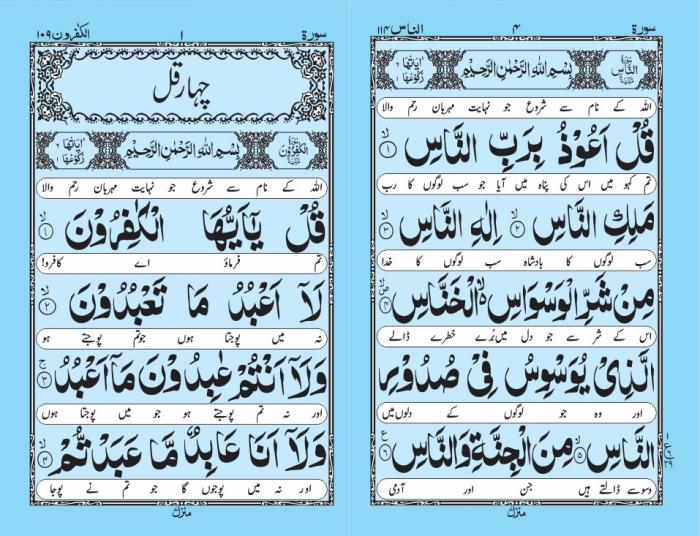 سورة ١ الكفرون ١٠٩
چہار قل
سورة الكٰفرون بِسْمِ اللهِ الرَّحْمٰنِ الرَّحِيْمِ اٰیاتها ٦ رکوعها ١
اللہ کے نام سے شروع جو نہایت مہربان رحم والا
قُلْ يٰٓاَيُّهَا الْكٰفِرُوْنَ ۙ﴿١﴾
تم فرماؤ اے کافرو!
لَآ اَعْبُدُ مَا تَعْبُدُوْنَ ۙ﴿٢﴾
نہ میں پوجتا ہوں جوتم پوجتے ہو
وَلَآ اَنْتُمْ عٰبِدُوْنَ مَآ اَعْبُدُ ۚ﴿٣﴾
اور نہ تم پوجتے ہو جو میں پوجتا ہوں
وَلَآ اَنَا عَابِدٌ مَّا عَبَدْتُّمْ ۙ﴿٤﴾
اور نہ میں پوجوں گا جو تم نے پوجا
منزل
سورة ٤ الناس ١١٤
سورة النَّاس بِسْمِ اللهِ الرَّحْمٰنِ الرَّحِيْمِ اٰیاتها ٦ رکوعها ١
اللہ کے نام سے شروع جو نہایت مہربان رحم والا
قُلْ اَعُوْذُ بِرَبِّ النَّاسِ ۙ﴿١﴾
تم کہو میں اس کی پناہ میں آیا جو سب لوگوں کا رب
مَلِكِ النَّاسِ ۙ﴿٢﴾ اِلٰهِ النَّاسِ ۙ﴿٣﴾
سب لوگوں کا بادشاہ سب لوگوں کا خدا
مِنْ شَرِّ الْوَسْوَاسِ ۙ الْخَنَّاسِ ۪ۙ﴿٤﴾
اس کے شر سے جو دل میں بُرے خطرے ڈالے
الَّذِيْ يُوَسْوِسُ فِيْ صُدُوْرِ
اور وہ جو لوگوں کے دلوں میں
النَّاسِ ۙ﴿٥﴾ مِنَ الْجِنَّةِ وَالنَّاسِ ﴿٦﴾
وسوسے ڈالتے ہیں جن اور آدمی
منزل